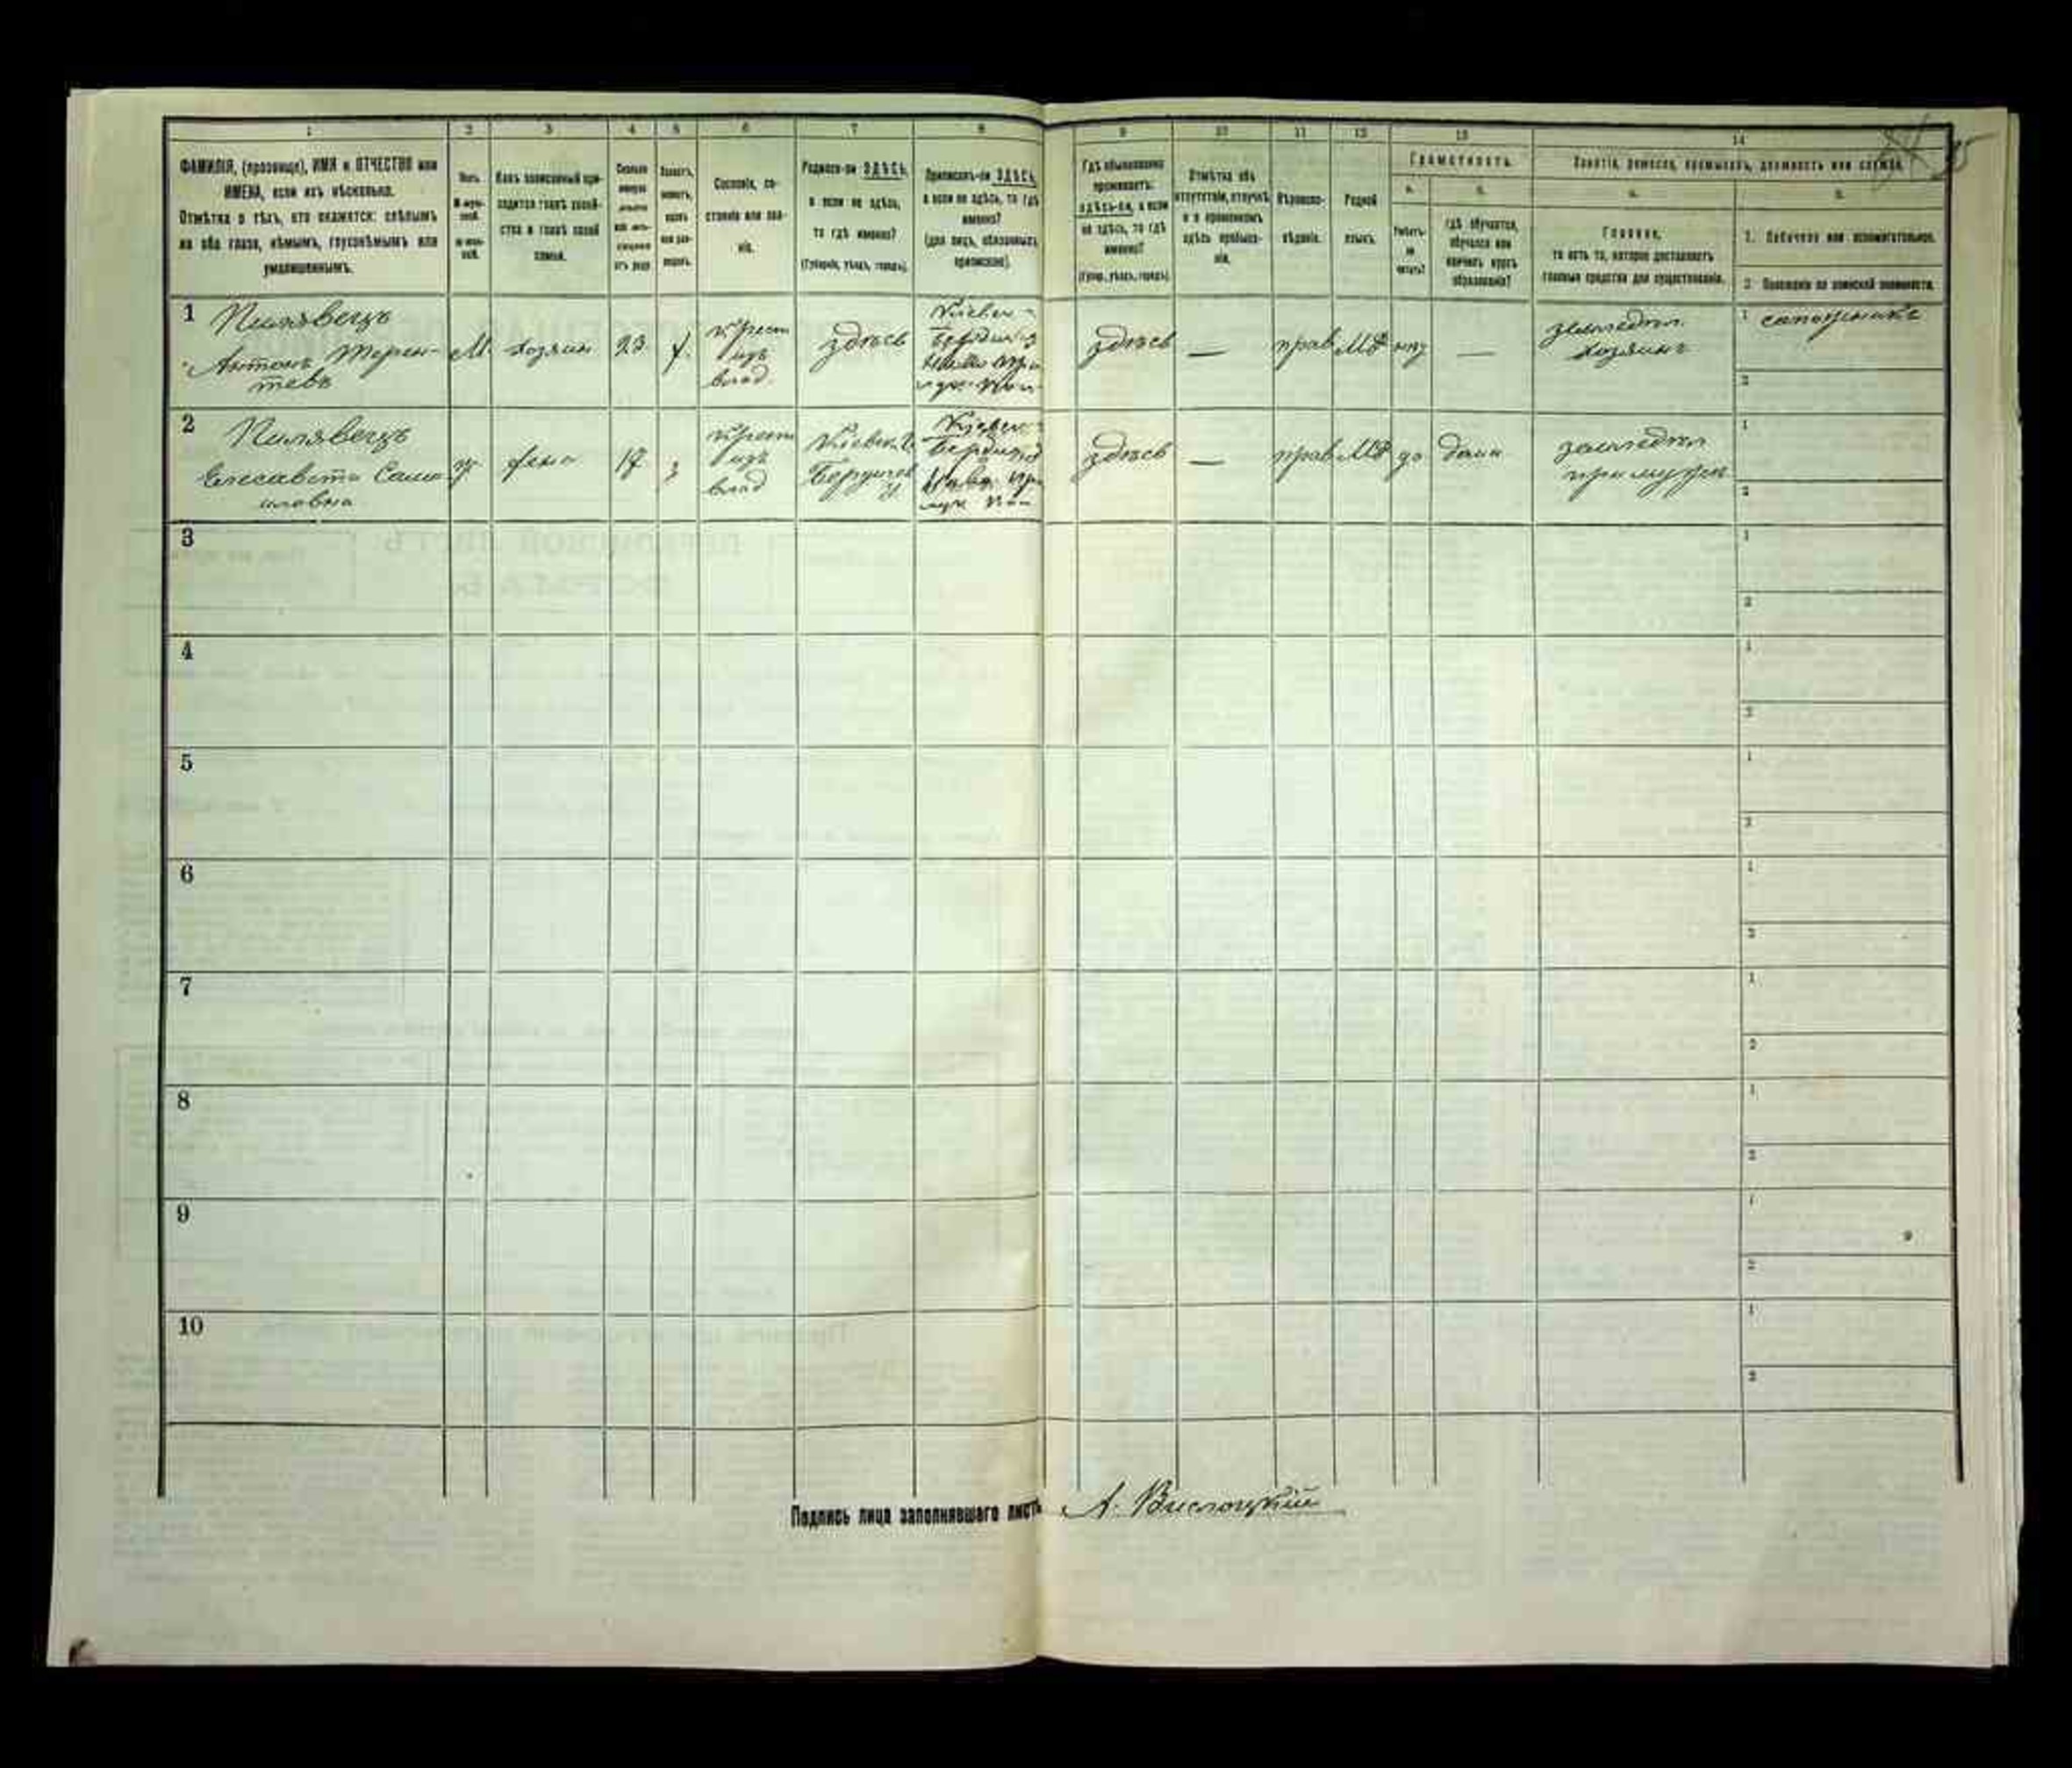 1 2 3 4 5 6 7 8 9 10 11 12 13 14
ФАМИЛІЯ, (прозвище), ИМЯ и ОТЧЕСТВО или
ИМЕНА, если ихъ нѣсколько.
Отмѣтка о тѣхъ, кто окажется: слѣпымъ
на оба глаза, нѣмымъ, глухонѣмымъ или
умалишеннымъ.
Какъ записанный при-
ходится главѣ хозяй-
ства и главѣ своей
семьи.
Сословіе, со-
стояніе или зва-
ніе.
Родился-ли ЗДѢСЬ,
а если не здѣсь,
то гдѣ именно?
(Губернія, уѣздъ, городъ).
Приписанъ-ли ЗДѢСЬ,
а если не здѣсь, то гдѣ
именно?
(для лицъ, обязанныхъ
припиской).
Гдѣ обыкновенно
проживаетъ:
здѣсь-ли, а если
не здѣсь, то гдѣ
именно?
(Губер., уѣздъ, городъ).
Отмѣтка объ
отсутствіи, отлучкѣ
и о временномъ
здѣсь пребыва-
ніи.
Вѣроиспо-
вѣданіе.
Родной
языкъ.
Грамотность.
а.
Умѣетъ-
ли
читать?
б.
гдѣ обучается,
обучался или
кончилъ курсъ
образованія?
Занятіе, ремесло, промыселъ, должность или служба.
а.
Главное,
то есть то, которое доставляетъ
главныя средства для существованія.
б.
1. Побочное или вспомогательное.
2. Положеніе по воинской повинности.
1 Пилявецъ
Антонъ Терен-
тевъ
М. хозяин 23. ж.
крест
изъ
влад.
здѣсь
здѣсь — прав МР нѣт —
земледѣл.
хозяинъ
1 сапожникъ
2
2 Пилявецъ
Елисавета Саму-
иловна
ж жена 17 з
крест
изъ
влад
Кіевск. г.
Бердичев
у.
здѣсь — прав МР да дома
земледѣл
при мужѣ
1
2
3
1
2
4
1
2
5
1
2
6
1
2
7
1
2
8
1
2
9
1
2
10
1
2
Подпись лица заполнявшаго листъ А. Вислоцкій